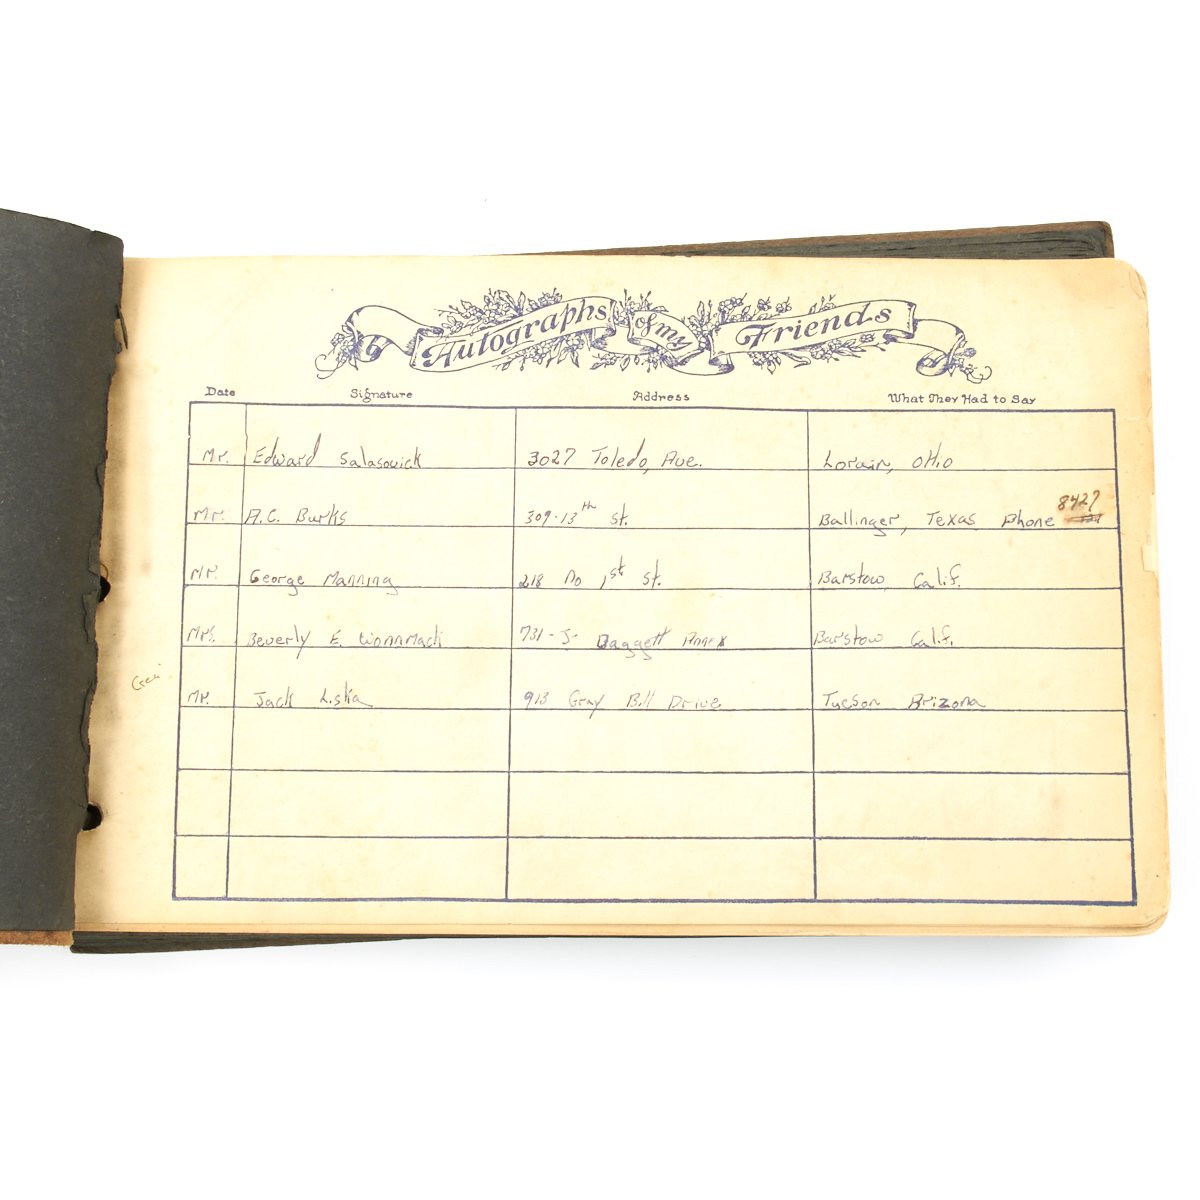 Autographs of my Friends
Date Signature Address What They Had to Say
Mr. Edward Salasovick 3027 Toledo, Ave. Lorain, Ohio
8427
Mr. A.C. Burks 309-13th St. Ballinger, Texas Phone
Mr. George Manning 218 No 1st St. Barstow, Calif.
Mrs. Beverly E. Wommack 731-J- Daggett Annex Barstow Calif.
Mr. Jack Liska 913 Gray Bill Drive Tucson Arizona